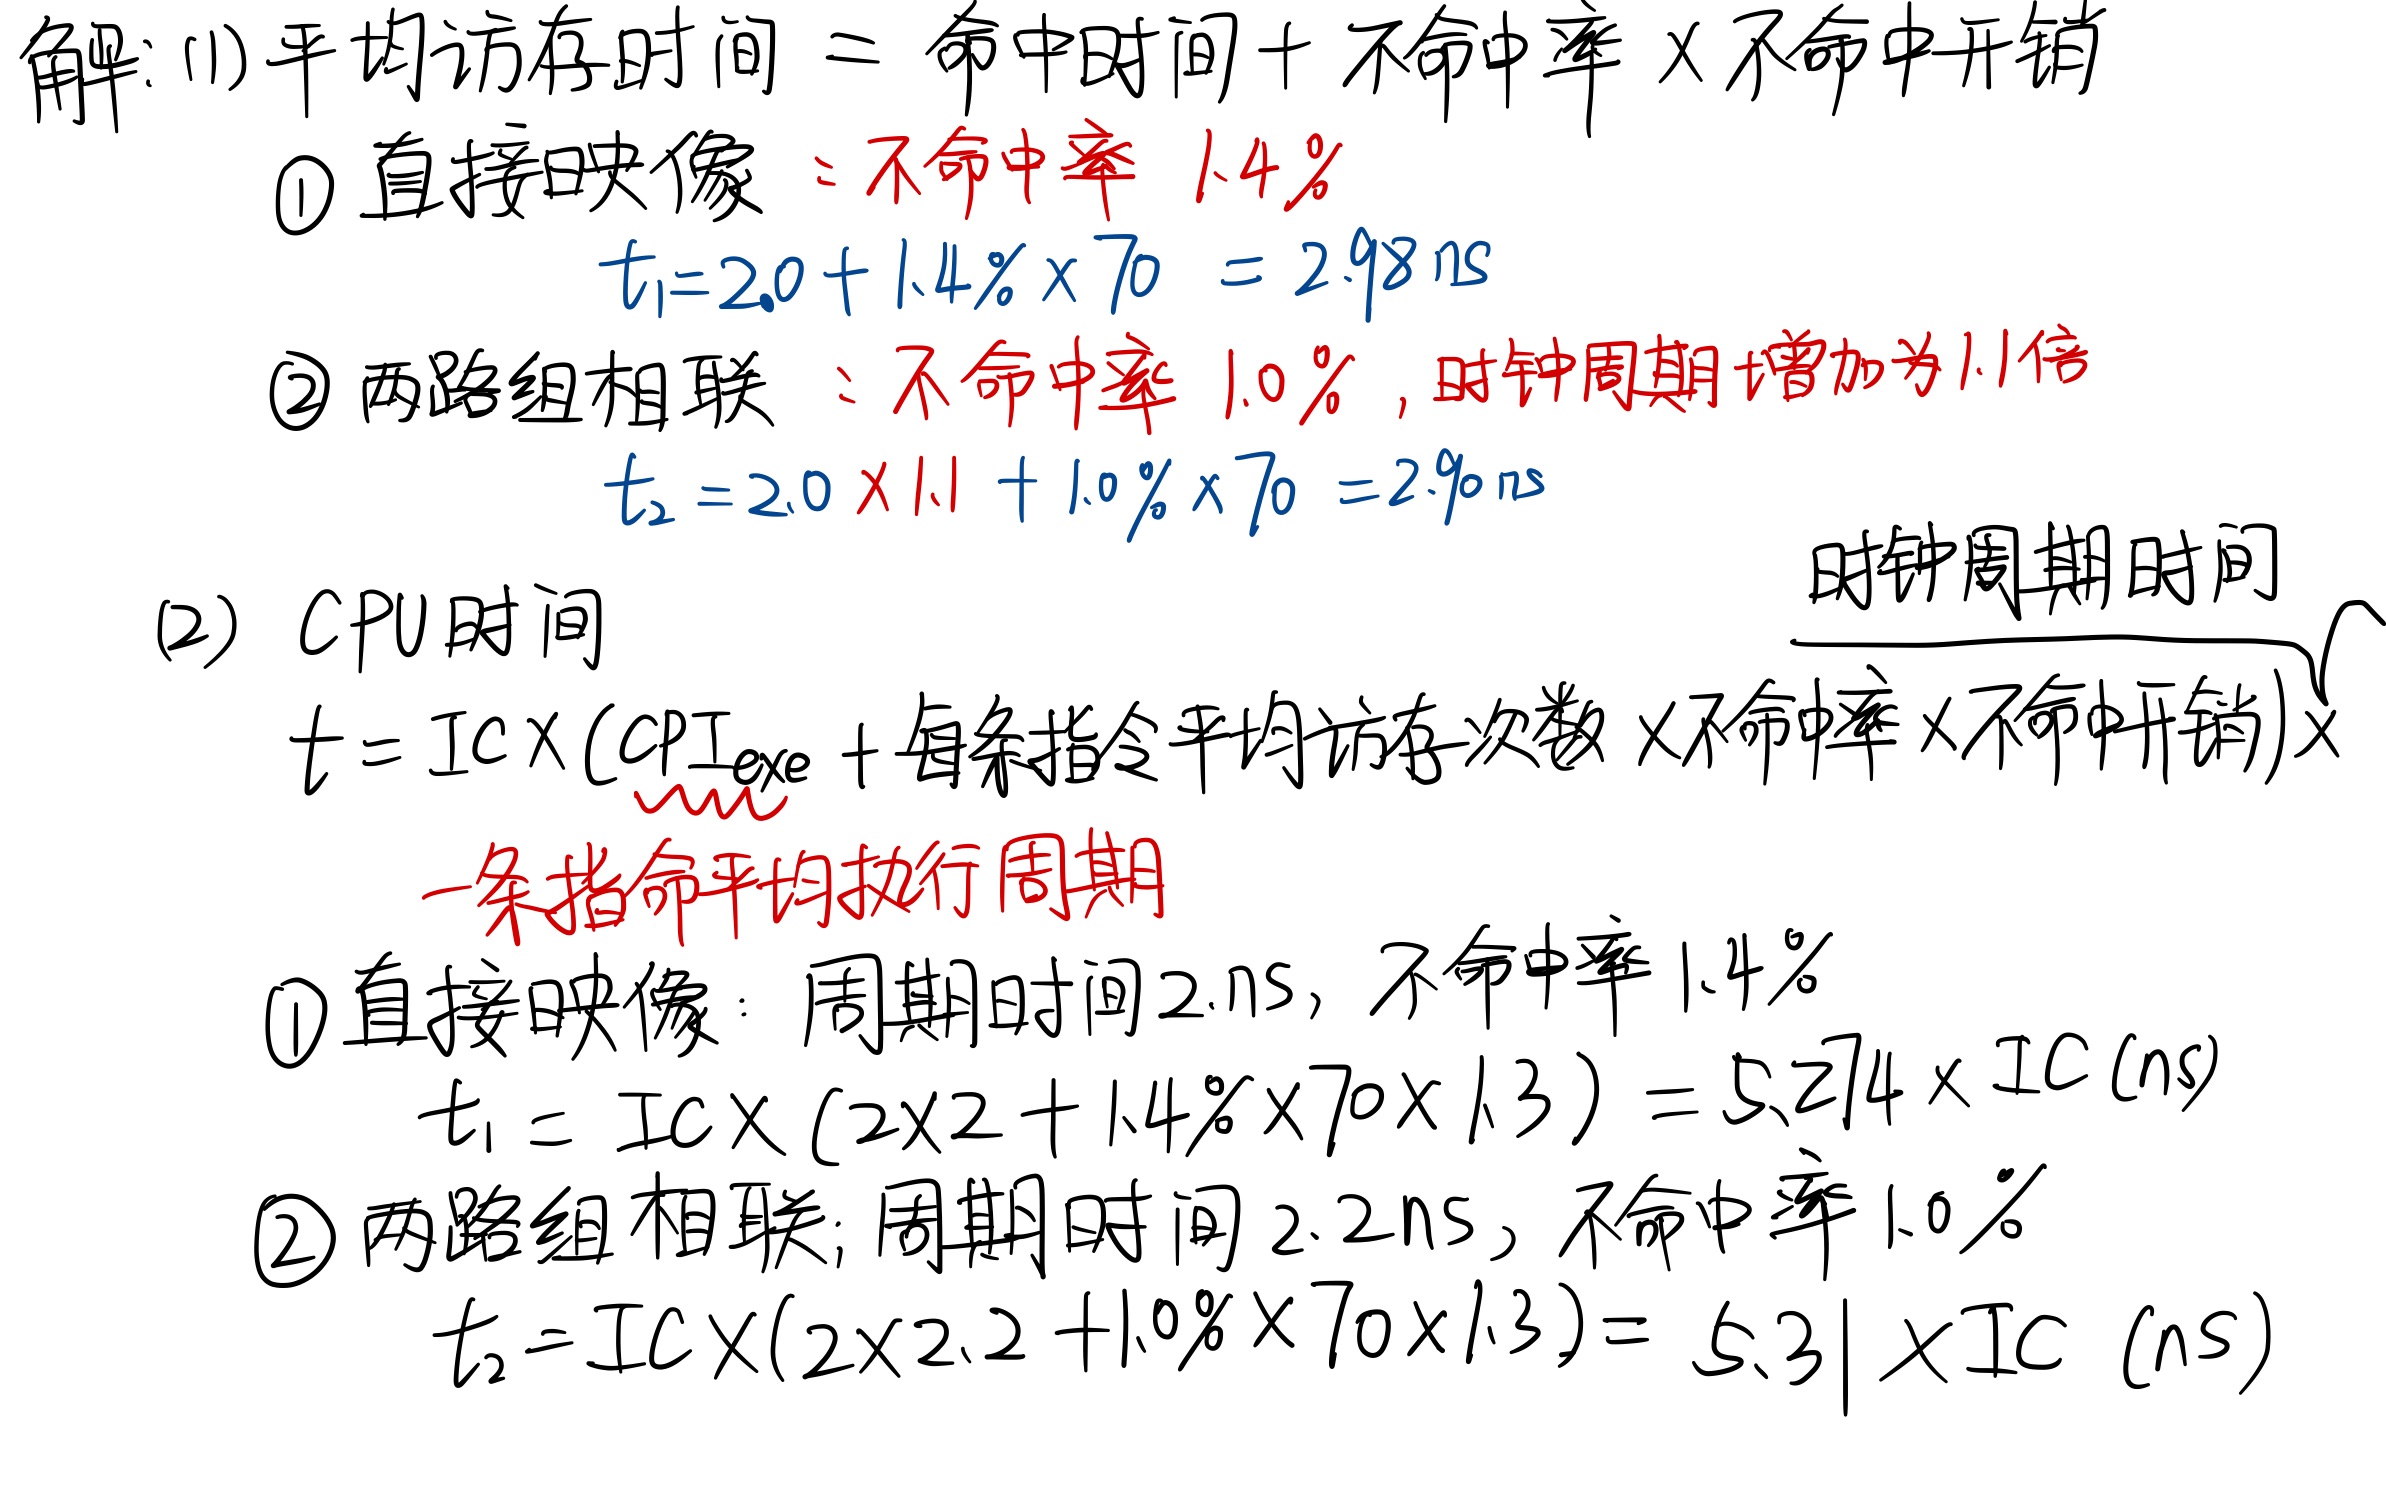 解:(1)平均访存时间 = 命中时间 + 不命中率 × 不命中开销
① 直接映像:不命中率 1.4%
t₁=2.0+1.4%×70 = 2.98ns
② 两路组相联:不命中率 1.0%,时钟周期增加为1.1倍
t₂=2.0×1.1+1.0%×70=2.90ns
(2) CPU时间
时钟周期时间
t=IC×(CPI_exe+每条指令平均访存次数×不命中率×不命中开销)×
一条指令平均执行周期
① 直接映像:周期时间2.ns,不命中率1.4%
t₁ = IC×(2×2+1.4%×70×1.3) = 5.274×IC(ns)
② 两路组相联:周期时间2.2ns,不命中率1.0%
t₂=IC×(2×2.2+1.0%×70×1.3)=5.31×IC(ns)